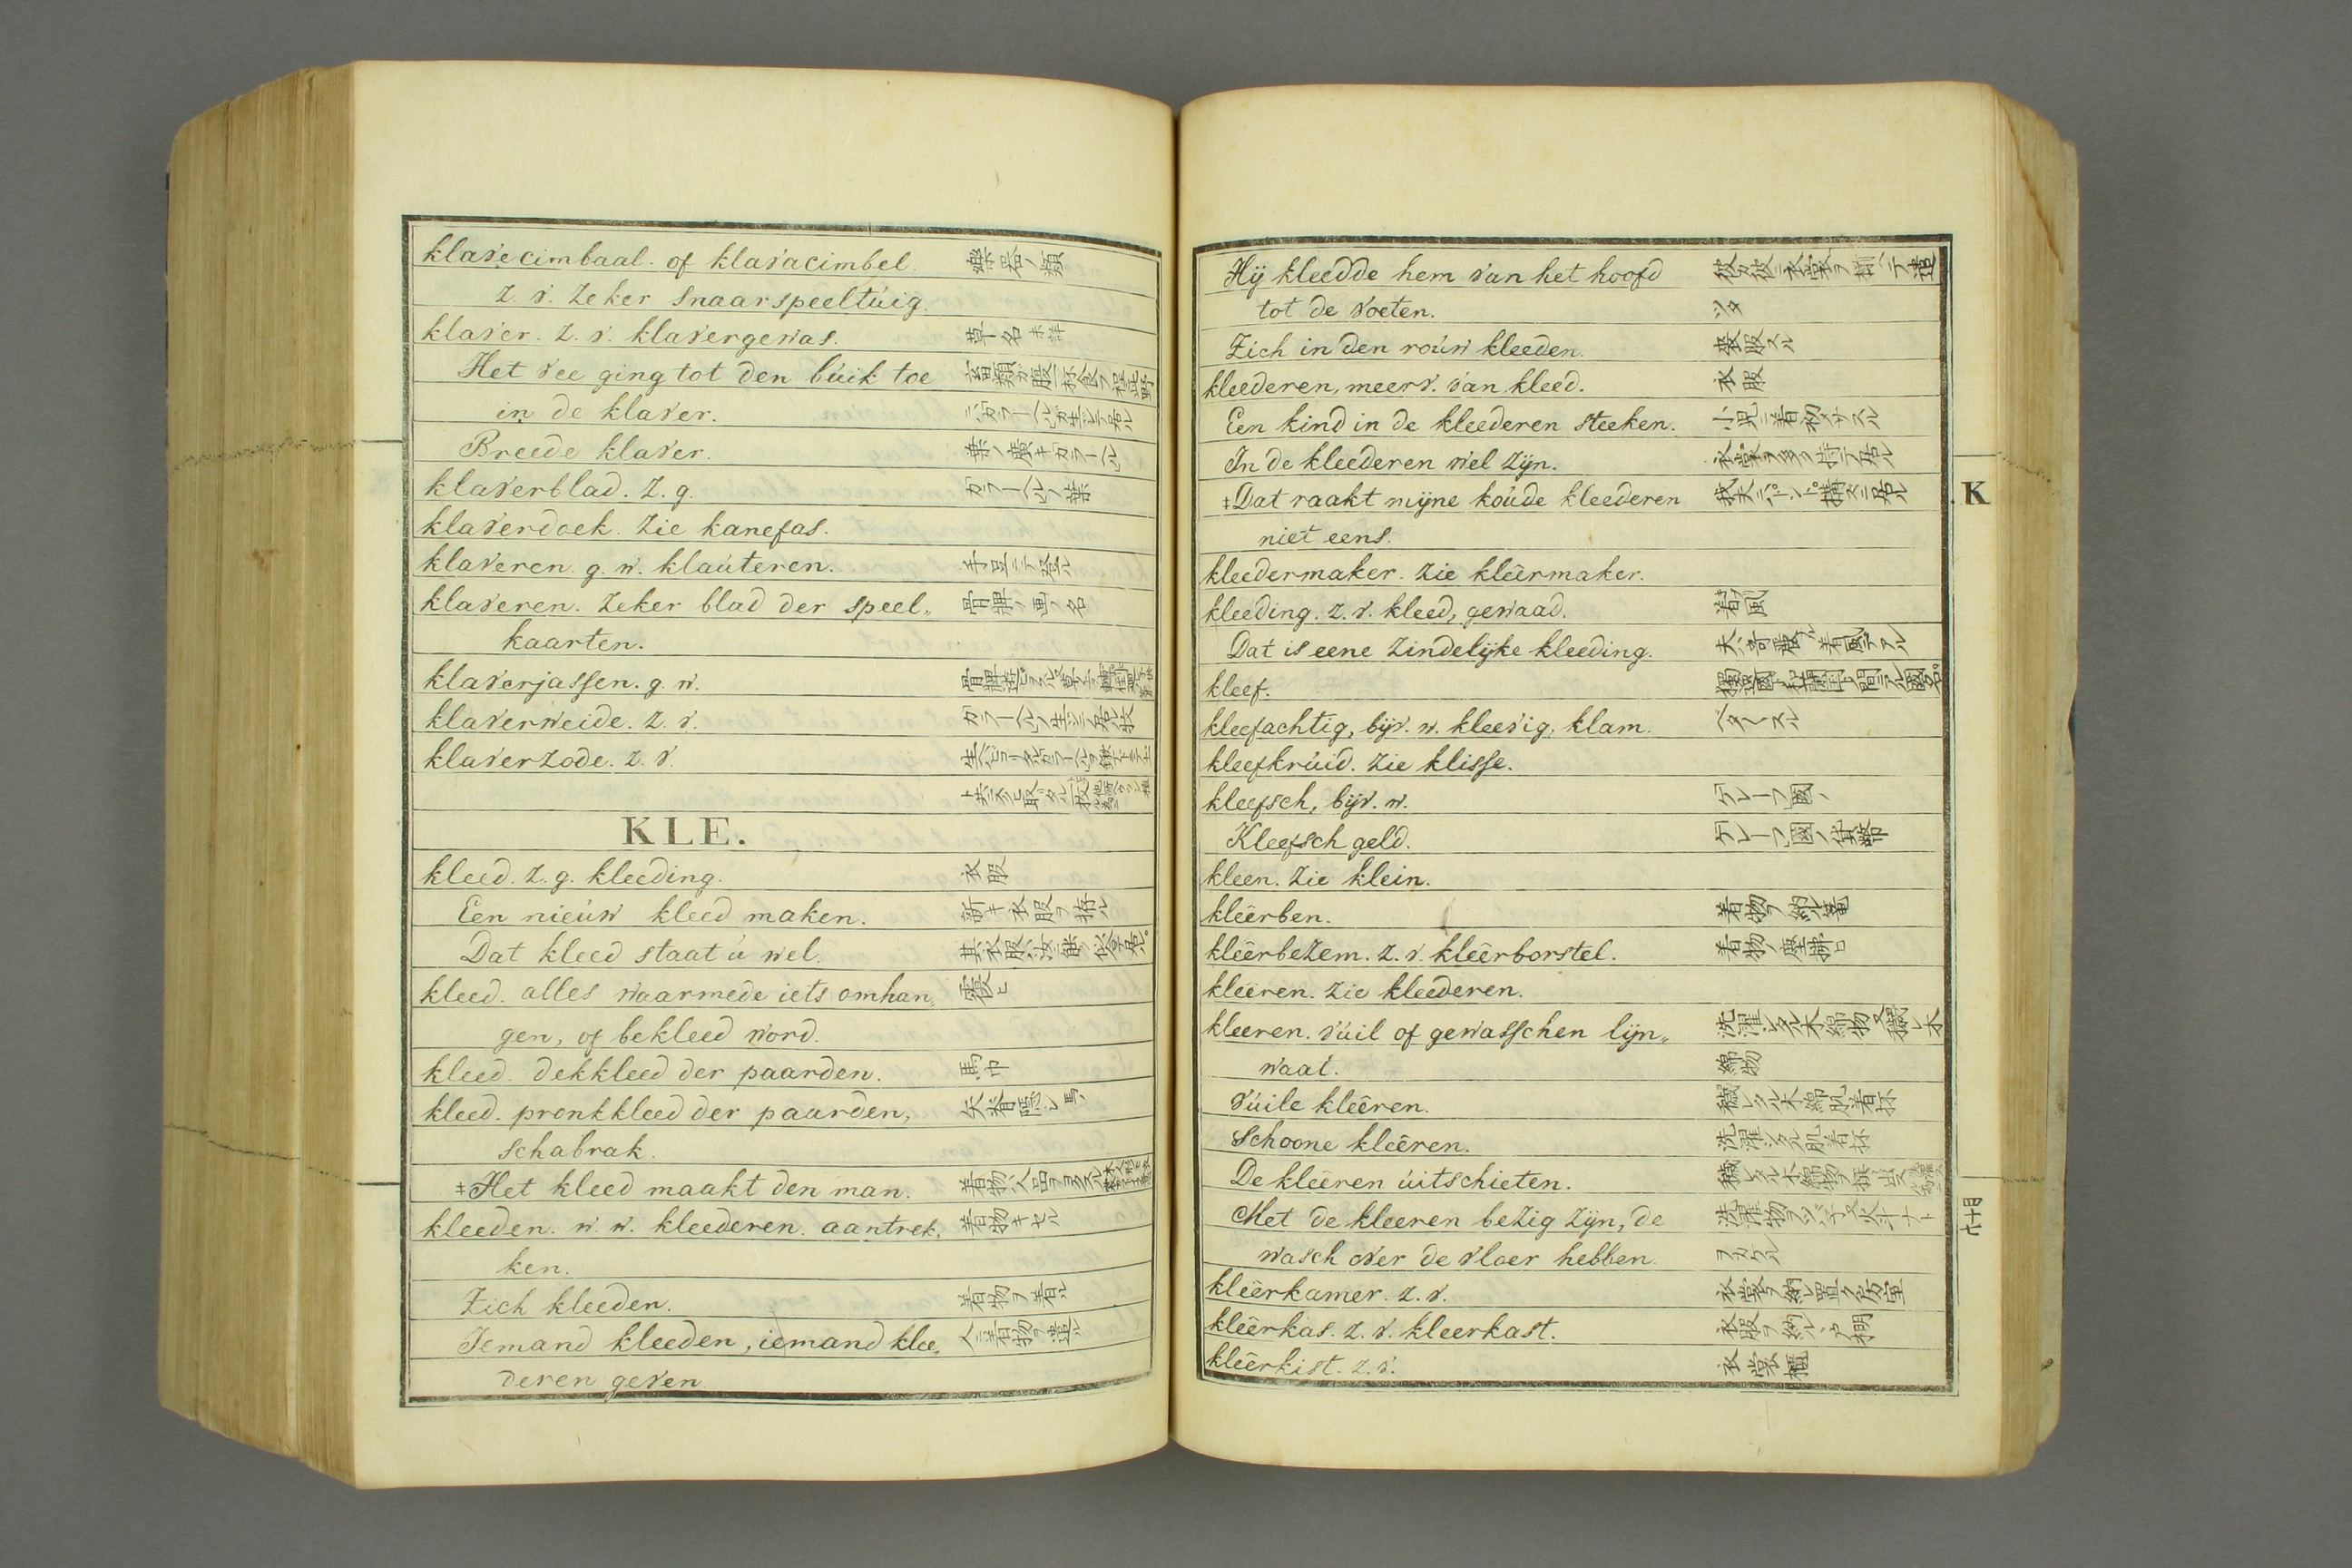 klavecimbaal. of klavacimbel. 樂器ノ類
z. v. zeker snaarspeeltúig.
klaver. z. v. klavergewas. 草ノ名
Het vee ging tot den búik toe
in de klaver.
Breede klaver. 葉ノ廣キカラーヘル
klaverblad. z. g. カラーヘルノ葉
klaverdoek. zie kanefas.
klaveren. g. w. klaúteren.
klaveren. zeker blad der speel„ 骨牌ノ画ノ名
kaarten.
klaverjassen. g. w.
klaverweide. z. v.
klaverzode. z. v.
KLE.
kleed. z. g. kleeding. 衣服
Een nieúw kleed maken. 新キ衣服ヲ拵ル
Dat kleed staat ú wel.
kleed. alles waarmede iets omhan„ 覆ヒ
gen, of bekleed word.
kleed. dekkleed der paarden. 馬巾
kleed. pronkkleed der paarden,
schabrak.
‡Het kleed maakt den man.
kleeden. w. w. kleederen. aantrek„ 着物キセル
ken.
Zich kleeden. 着物ヲ着ル
Iemand kleeden, iemand klee„ 人ニ着物ヲ遣ル
deren geven
Hij kleedde hem van het hoofd
tot de voeten. シタ
Zich in den roúw kleeden. 喪服スル
kleederen, meerv. van kleed. 衣服
Een kind in de kleederen steeken. 小児ニ着物キサスル
In de kleederen wel zijn. 衣裳ヲ多ク持テ居ル
‡Dat raakt mijne koúde kleederen
niet eens.
kleedermaker. zie kleêrmaker.
kleeding. z. v. kleed, gewaad. 着風
Dat is eene zindelijke kleeding.
kleef.
kleefachtig, bijv. w. kleevig, klam.
kleefkrúid. zie klisse.
kleefsch, bijv. w. ケレーフ國ノ
Kleefsch geld. ケレーフ國ノ貨幣
kleen. zie klein.
kleêrben. 着物ヲ納ル篭
kleêrbezem. z. v. kleêrborstel. 着物ノ塵拂ヒ
kleêren. zie kleederen.
kleeren. vúil of gewasschen lijn„ 洗濯シタル木綿物又穢レ木
waat. 綿物
Vúile kleêren. 穢レタル木綿肌着抔
Schoone kleêren. 洗濯シタル肌着抔
De kleêren úitschieten.
Met de kleeren bezig zijn, de
wasch over de vloer hebben.
kleêrkamer. z. v. 衣裳ヲ納レ置ク所ノ室
kleêrkas. z. v. kleerkast. 衣服ヲ納ル戸棚
kleêrkist. z. v. 衣裳櫃
K